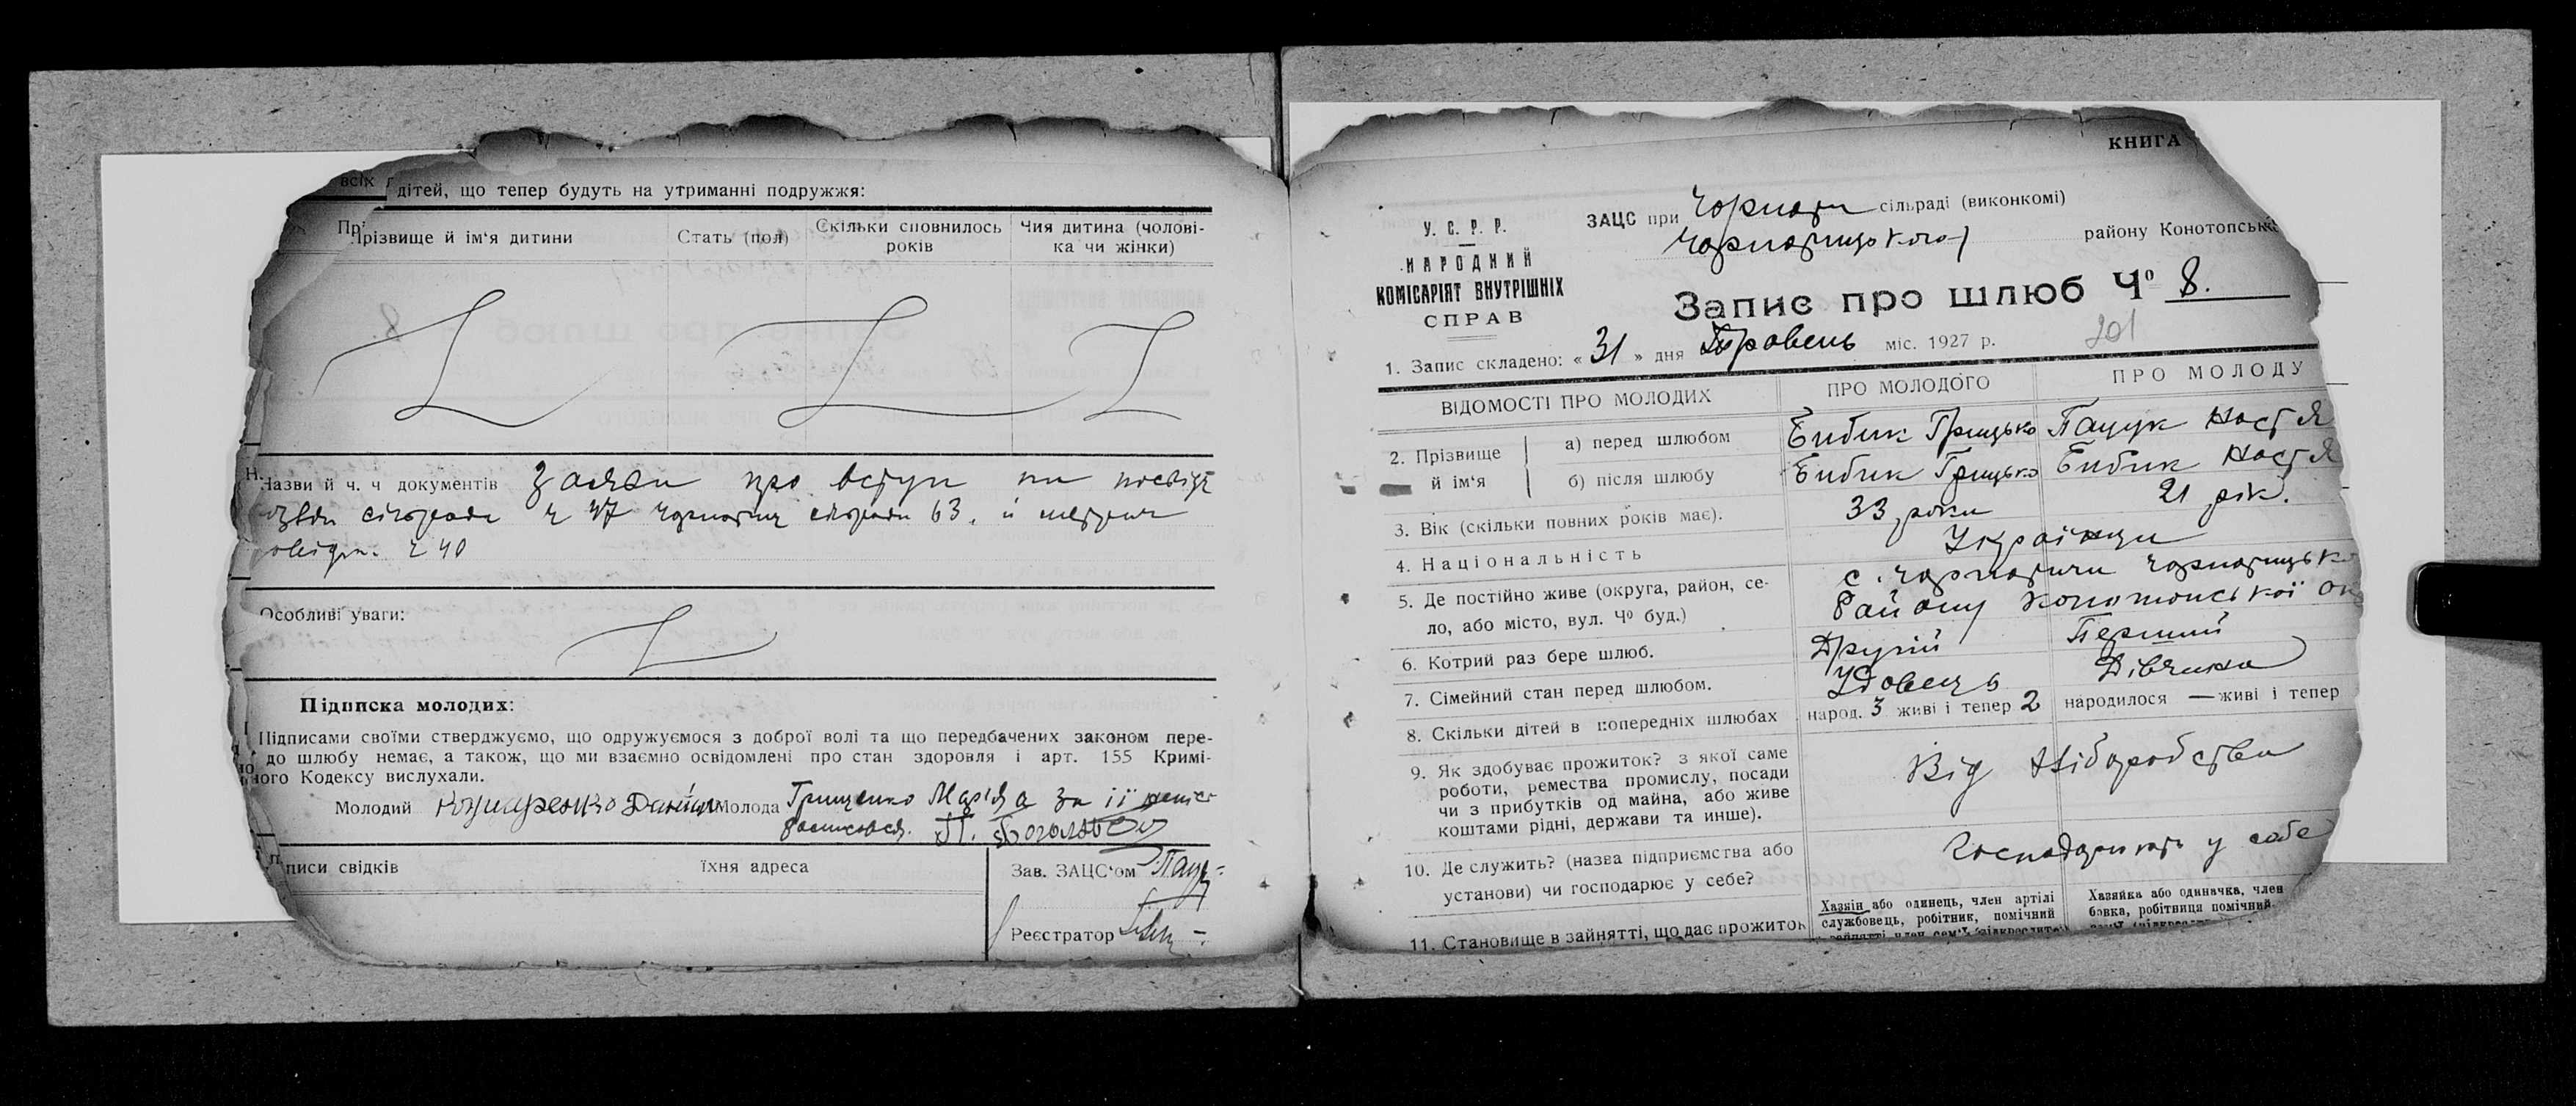 всіх
дітей, що тепер будуть на утриманні подружжя:
Прізвище й ім‘я дитини
Стать (пол)
Скільки сповнилось років
Чия дитина (чолові-
ка чи жінки)
Назви й ч. ч документів Заяви про вступ
сільради ч 47 сільради 63. й
ч 40
Особливі уваги:
Підписка молодих:
Підписами своїми стверджуємо, що одружуємося з доброї волі та що передбачених законом пере-
до шлюбу немає, а також, що ми взаємно освідомлені про стан здоровля і арт. 155 Кримі-
ного Кодексу вислухали.
Молодий Данііл Молода Грищенко Марія а за її
росписався. П.
писи свідків
їхня адреса
Зав. ЗАЦС‘ом
Реєстратор
КНИГА
У. С. Р. Р.
НАРОДНИЙ
КОМІСАРІЯТ ВНУТРІШНІХ
СПРАВ
ЗАЦС при сільраді (виконкомі)
району Конотопськ
Запис про шлюб Ч⁰ 8.
201
1. Запис складено: « 31 » дня Травень міс. 1927 р.
ВІДОМОСТІ ПРО МОЛОДИХ
ПРО МОЛОДОГО
ПРО МОЛОДУ
2. Прізвище й ім‘я
а) перед шлюбом Бибик Грицько Пацук Настя
б) після шлюбу Бибик Грицько Бибик Настя
3. Вік (скільки повних років має). 33 роки 21 рік.
4. Національність Українци
5. Де постійно живе (округа, район, се-
ло, або місто, вул. Ч⁰ буд.)
с.
Району Конотопської ок
6. Котрий раз бере шлюб. Другий Перший
7. Сімейний стан перед шлюбом. Удовець Дівчина
8. Скільки дітей в попередніх шлюбах народ. 3 живі і тепер 2 народилося — живі і тепер
9. Як здобуває прожиток? з якої саме
роботи, ремества промислу, посади
чи з прибутків од майна, або живе
коштами рідні, держави та инше).
Від Хліборобства
10. Де служить? (назва підприємства або
установи) чи господарює у себе?
у себе
11. Становище в зайнятті, що дає прожиток
Хазяїн або одинець, член артілі
службовець, робітник, помічний
Хазяйка або одиначка, член
бовка, робітниця помічний